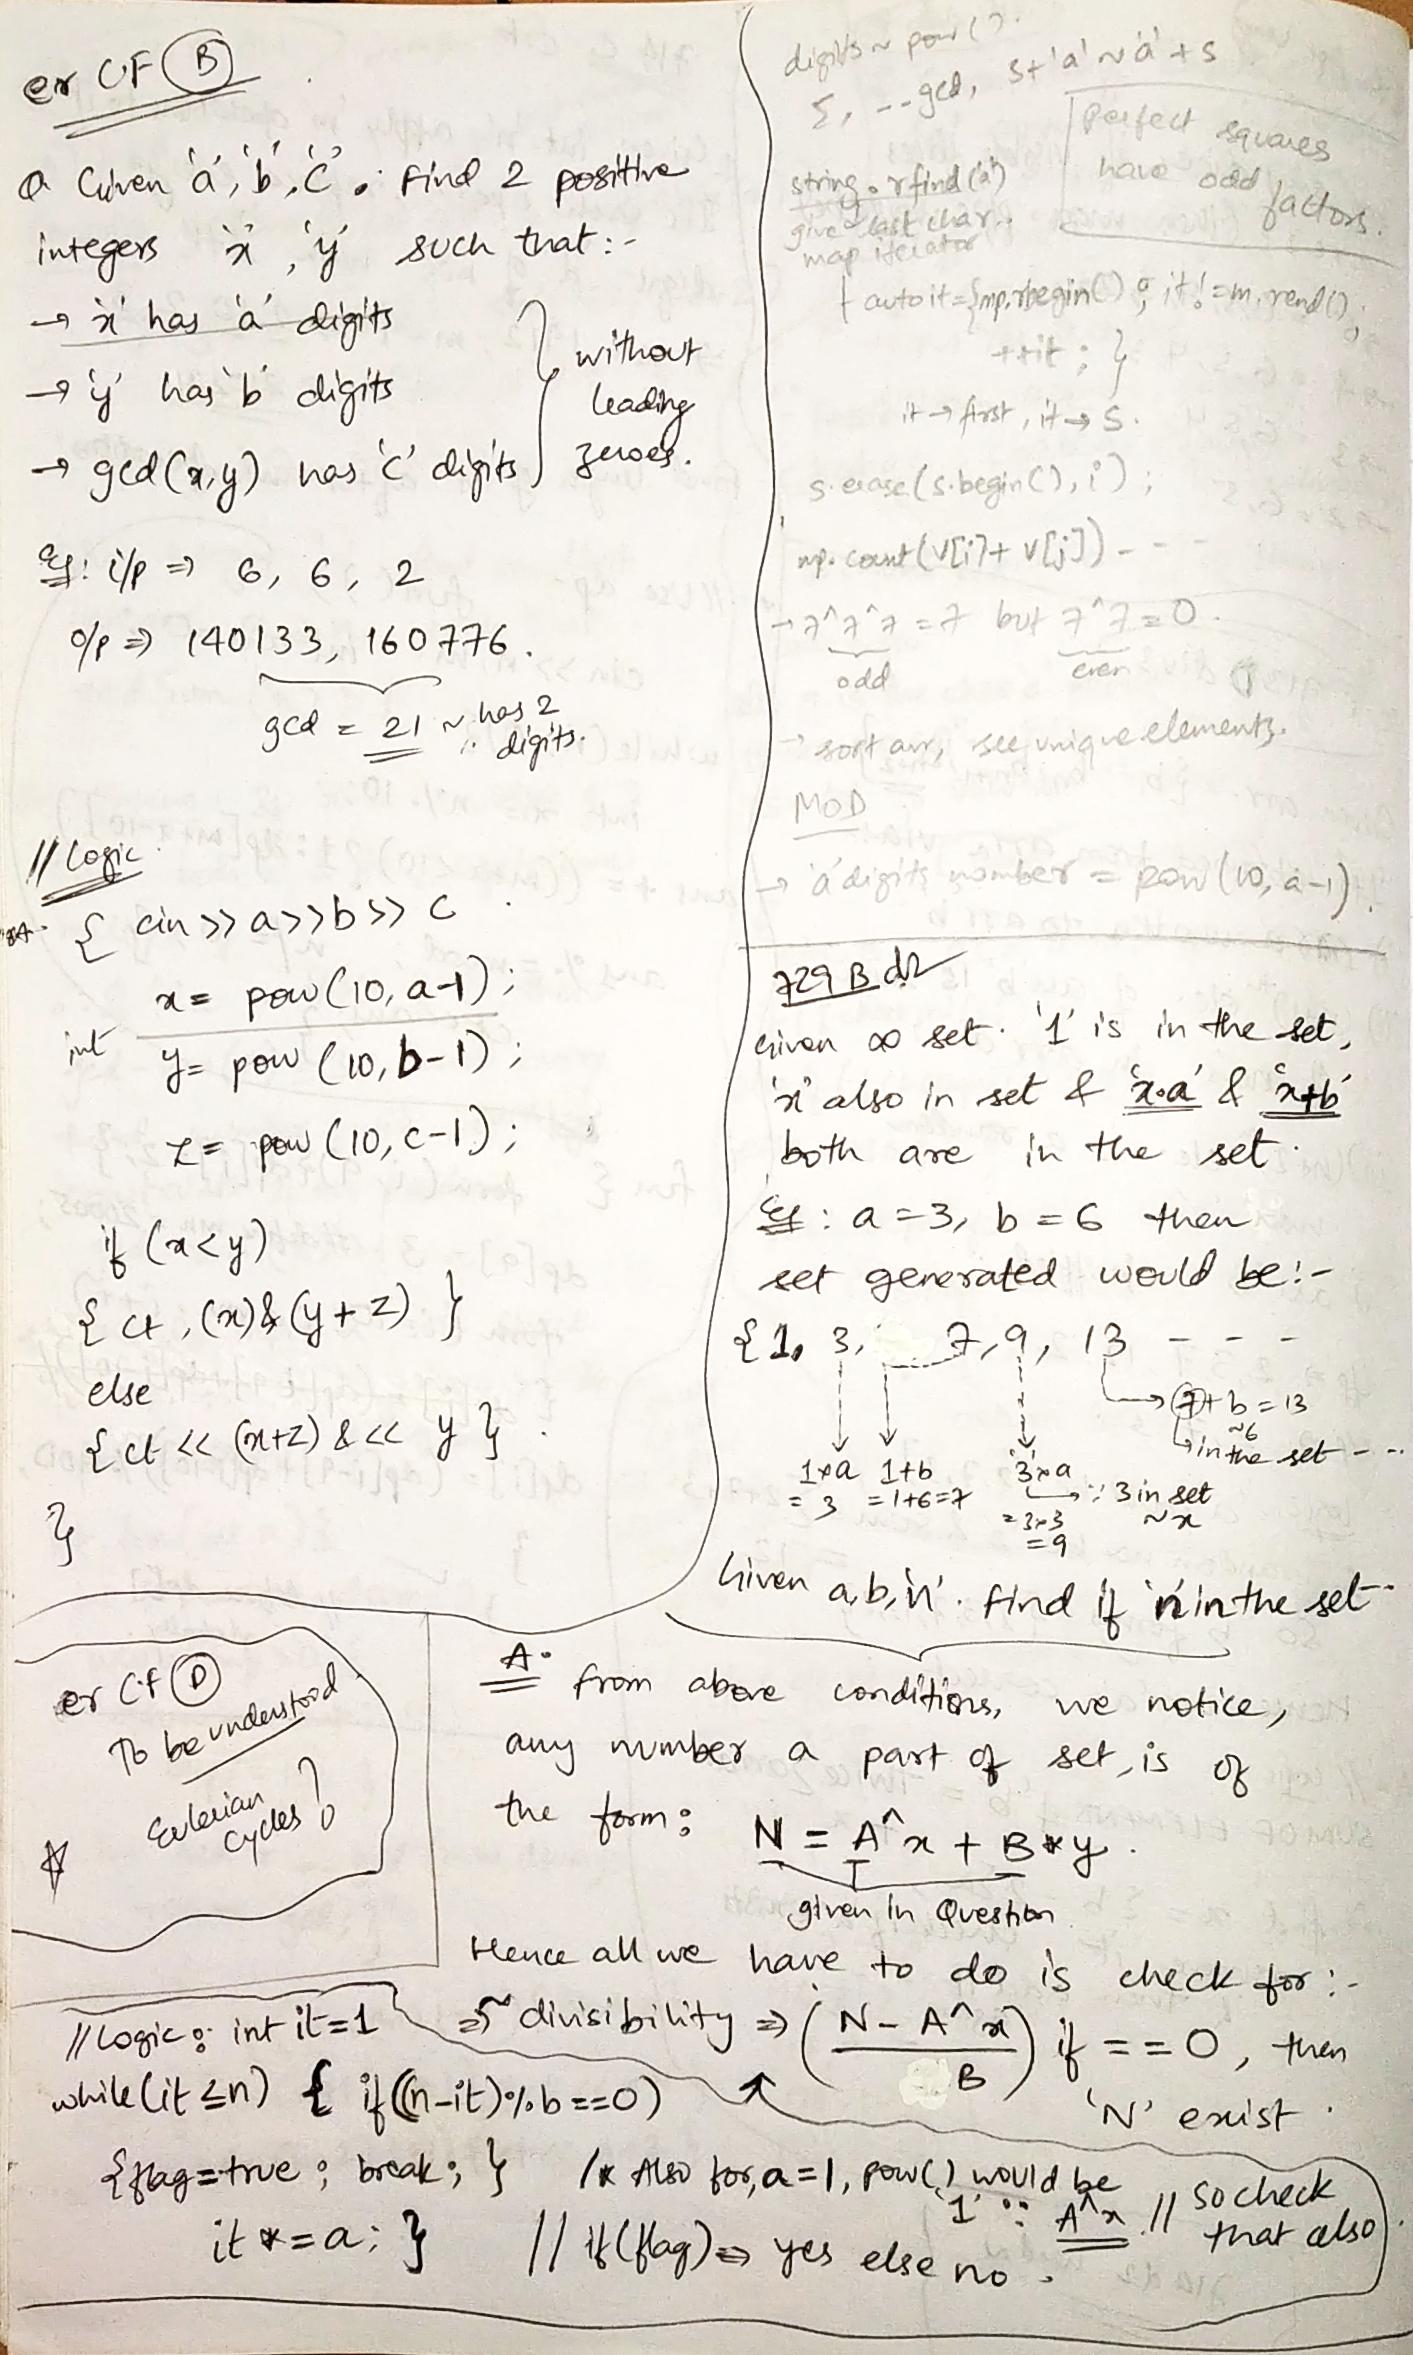 er CF B
Q Given 'a', 'b', 'c'. Find 2 positive
integers 'x', 'y' such that:-
→ 'x' has 'a' digits
→ 'y' has 'b' digits
→ gcd(x,y) has 'c' digits
without
leading
zeroes.
Eg: i/p ⇒ 6, 6, 2
o/p ⇒ 140133, 160776.
gcd = 21 ~ has 2
digits.
// Logic
{ cin >> a >> b >> c
x = pow(10, a-1);
int y = pow(10, b-1);
z = pow(10, c-1);
if (x<y)
{ ct, (x) & (y+z) }
else
{ ct << (x+z) & << y }
}
digits ~ pow().
Σ, --gcd, s+'a' ~ 'a'+s
Perfect squares
have odd
factors.
string.rfind('a')
give last char..
map iterator
{ auto it = {mp.rbegin(); it != m.rend();
++it; }
it → first, it → s.
s.erase(s.begin(), i);
mp.count(v[i]+v[j]) - - -
→ 7^7^7 = 7 but 7^7 = 0.
odd even
→ sort arr, see unique elements.
MOD
→ 'a' digits number = pow(10, a-1).
729 B d2
Given ∞ set. '1' is in the set,
'x' also in set & 'x.a' & 'x+b'
both are in the set.
Eg: a=3, b=6 then
set generated would be:-
{1, 3, 7, 9, 13 - - -
7+b = 13
~6
in the set - --
1xa 1+b '3'xa
= 3 = 1+6=7 ∵ 3 in set
= 3x3 ~x
= 9
Given a,b,'n'. find if 'n' in the set--
er CF D
To be understood
Eulerian
cycles?
A. from above conditions, we notice,
any number a part of set, is of
the form: N = A^x + B*y.
given in Question
Hence all we have to do is check for:-
⇒ divisibility ⇒ (N - A^x / B) if ==0, then
'N' exist.
// Logic: int it=1
while(it ≤n) { if((n-it)%b==0)
{flag=true; break; } /* Also for, a=1, pow() would be
'1' ∵ A^x // so check
that also
it *=a; } // if(flag) ⇒ yes else no.